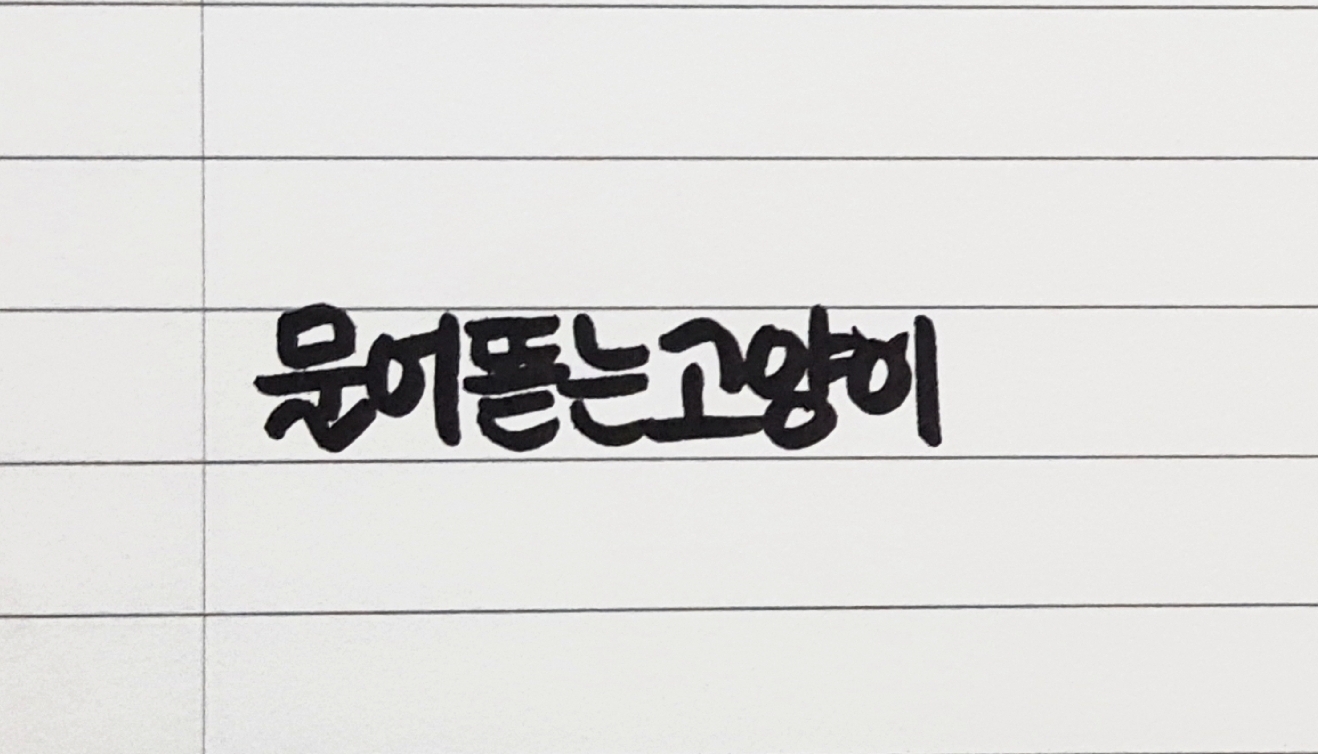 물어뜯는고양이